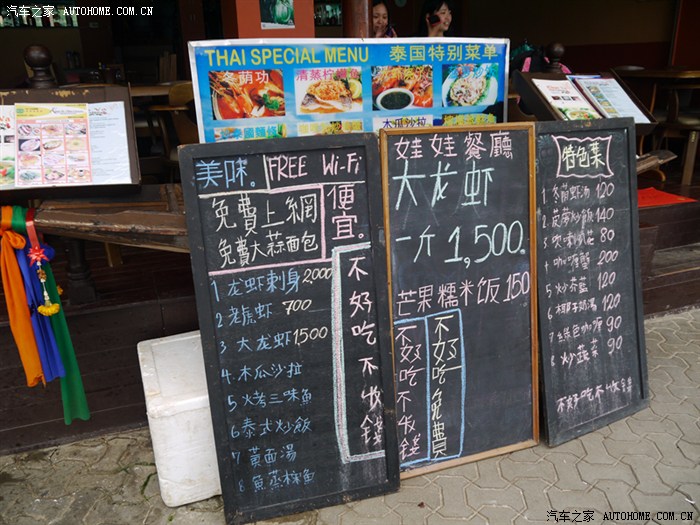 汽车之家 AUTOHOME.COM.CN
汽车之家 AUTOHOME.COM.CN
THAI SPECIAL MENU 泰国特别菜单
冬荫功
清蒸柠檬
木瓜沙拉
美味。
FREE Wi-Fi
免費上網
免費大蒜面包
便宜。
1 龙虾刺身 2,000
2 老虎虾 700
3 大龙虾 1500
4 木瓜沙拉
5 烤三味魚
6 泰式炒飯
7 黃面湯
8
不好吃不收錢
娃娃餐廳
大龙虾
一斤 1,500.
芒果糯米饭 150
不好吃不收錢
不好吃免費
特色菜
1 冬荫虾汤 120
2 菠萝炒飯 140
3 80
4 咖喱蟹 200
5 120
6 椰子奶湯 120
7 绿色咖喱 90
8 炒蔬菜 90
不好吃不收錢
汽车之家 WWW.AUTOHOME.COM.CN